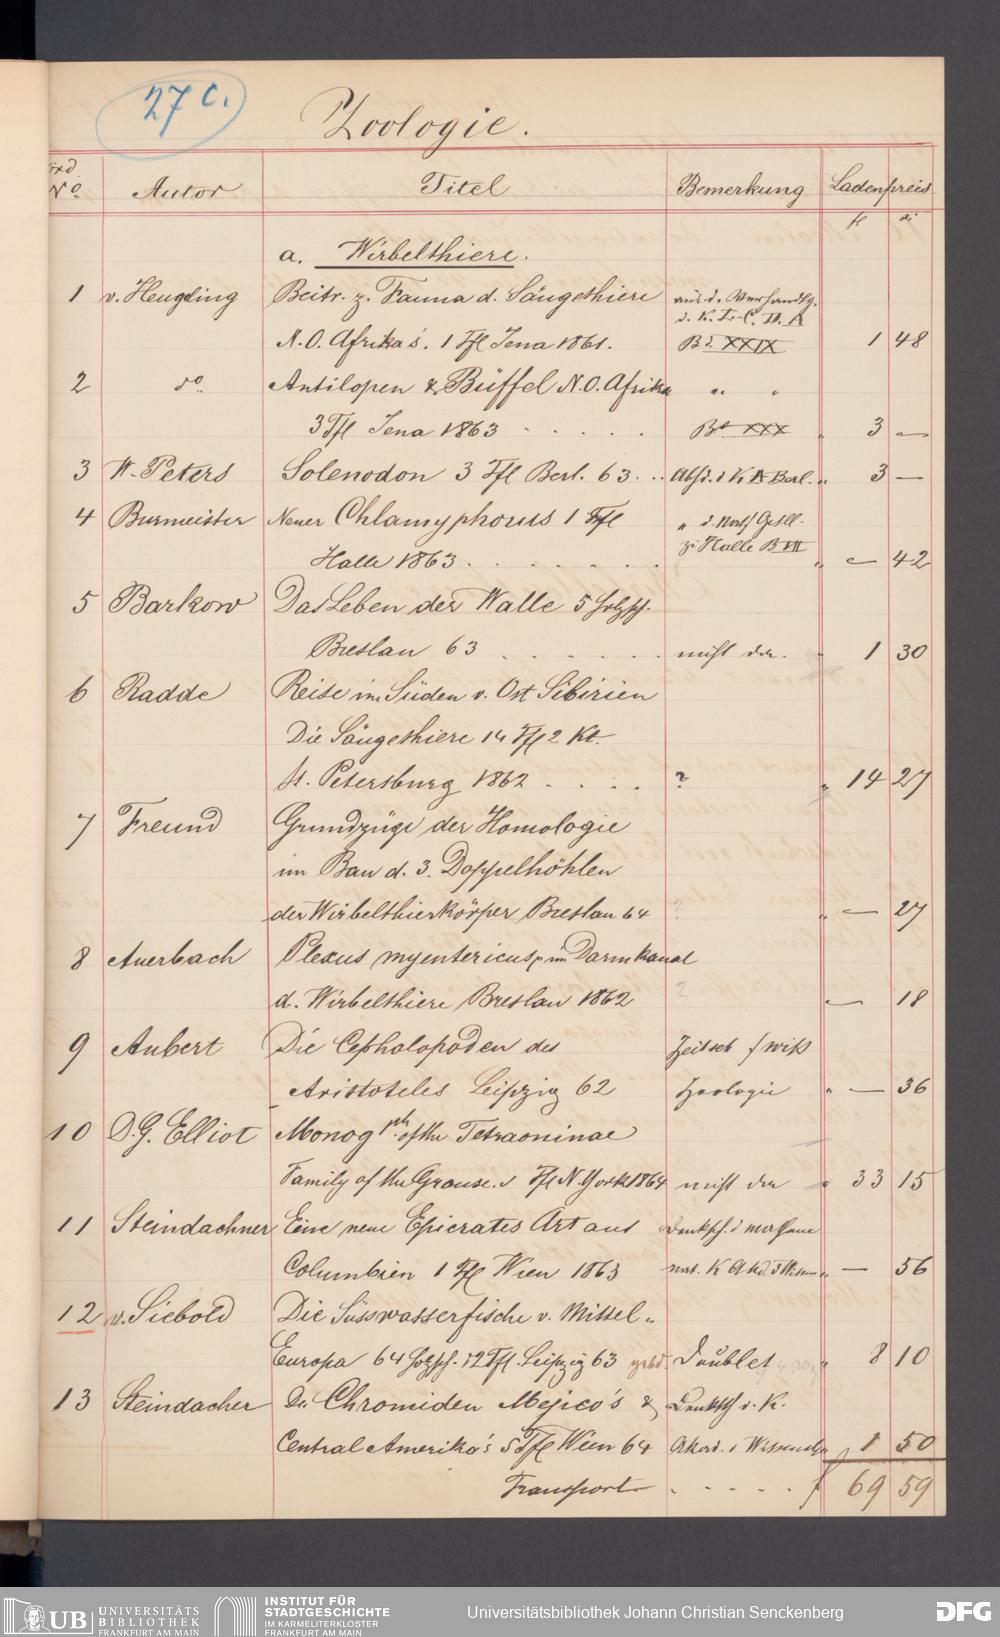 27 c.
Zoologie.
No. Autor Titel Bemerkung Ladenpreis
a. Wirbelthiere.
1 v. Heugling Beitr. z. Fauna d. Säugethiere aus d. Verhandlg.
d. K. L. C. D. A
N. O. Afrika's. 1 Tfl Jena 1861. Bd. XXIX 1 48
2 do. Antilopen & Büffel N. O. Afrika " "
3 Tfl Jena 1863 . . . . . Bd XXX " 3 —
3 W. Peters Solenodon 3 Tfl Berl. 63 . . Abh. d K A Berl. " 3 —
4 Burmeister Neuer Chlamyphorus 1 Tfl " d. natf Gesell.
zu Halle B VII
Halle 1863 . . . . . . . " — 42
5 Barkow Das Leben der Walle 5 Holzsch.
Breslau 63 . . . . . . nicht da. " 1 30
6 Radde Reise im Süden v. Ost Sibirien
Die Säugethiere 14 Tfl 2 Kt.
St. Petersburg 1862 . . . . ? " 14 27
7 Freund Grundzüge der Homologie
im Bau d. 3. Doppelhöhlen
der Wirbelthierkörper Breslau 64 ? " — 27
8 Auerbach Plexus myentericus, im Darmkanal
d. Wirbelthiere Breslau 1862 ? — 18
9 Aubert Die Cephalopoden des Zeitsch f wiss
Aristoteles Leipzig 62 Zoologie " — 36
10 D. G. Elliot Monogph. of the Tetraoninae
Family of the Grouse. Tfl N. York 1864 nicht da " 33 15
11 Steindachner Eine neue Epicrates Art aus Denksch. d
Columbien 1 Tfl Wien 1863 nat. K Akd. d Wissen " — 56
12 v. Siebold Die Süsswasserfische v. Mittel "
Europa 64 Holzsch. 2 Tfl. Leipzig 63 gebd. Doublet " 8 10
13 Steindacher Die Chromiden Mejico's & Denksch d. K.
Central Amerika's 5 Tfl Wien 64 Akad. d Wissensch " 1 50
Transport . . . . . f 69 59
UB UNIVERSITÄTS
BIBLIOTHEK
FRANKFURT AM MAIN
INSTITUT FÜR
STADTGESCHICHTE
IM KARMELITERKLOSTER
FRANKFURT AM MAIN
Universitätsbibliothek Johann Christian Senckenberg
DFG